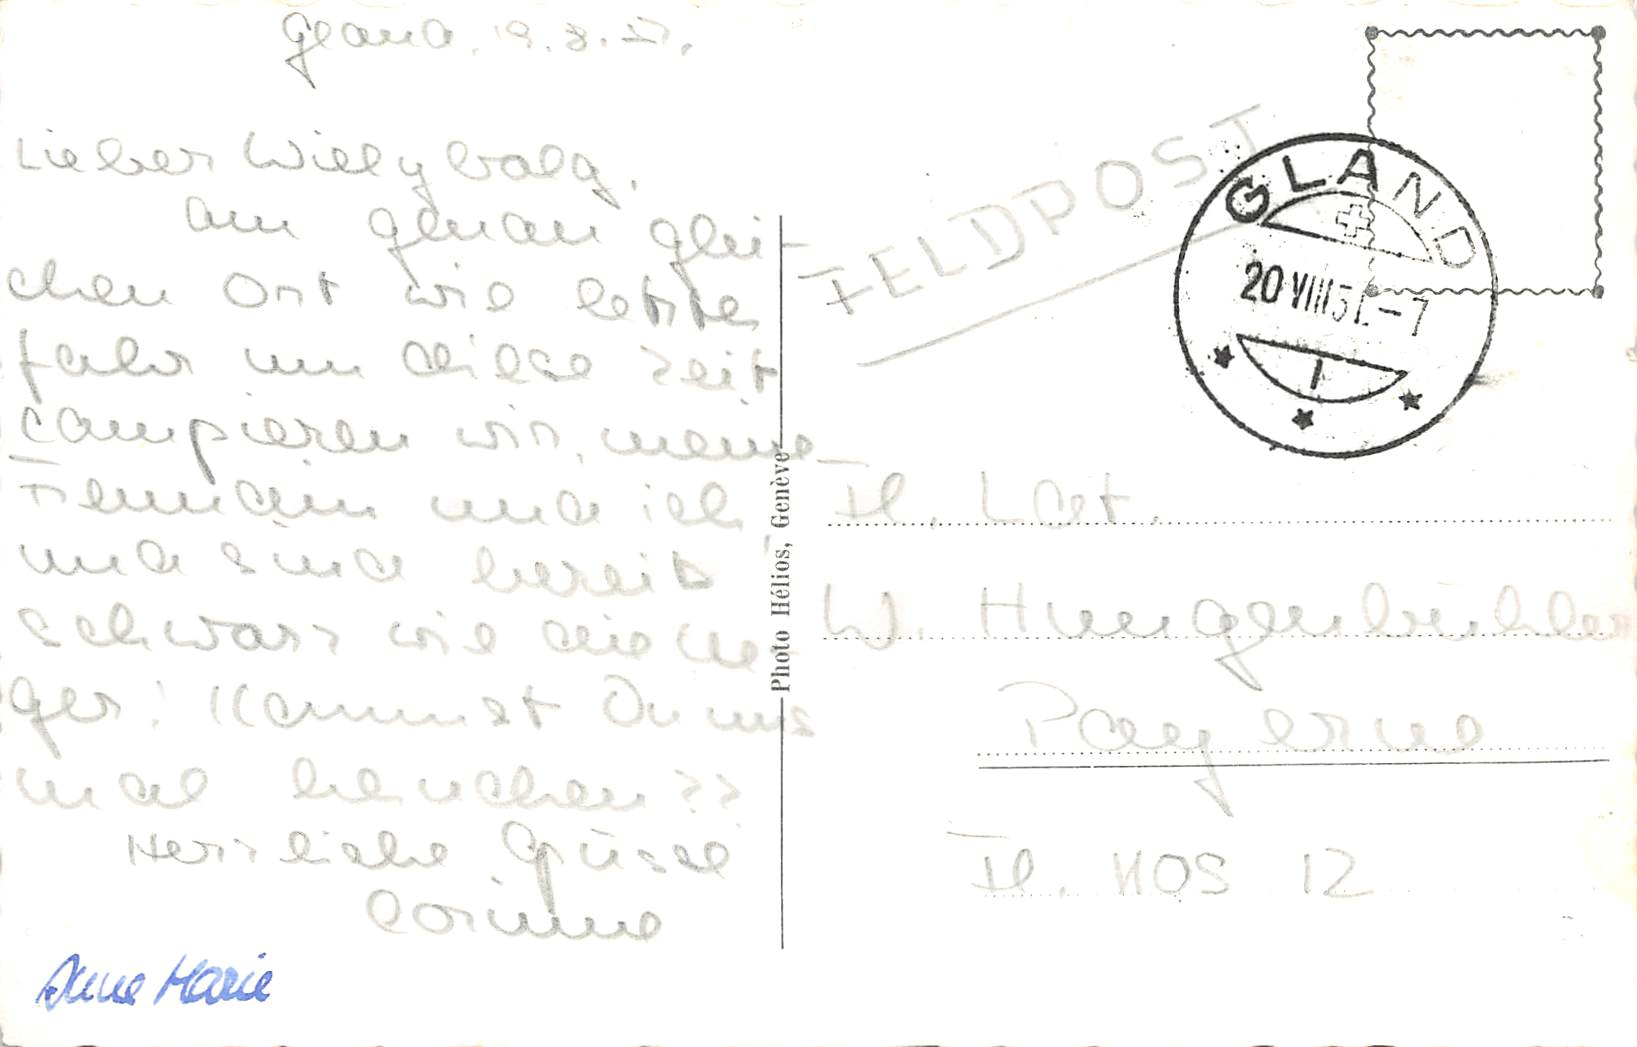 Gland, 19.8.51.
Lieber Willy
am genau glei-
chen Ort wie letztes
Jahr um diese Zeit
campieren wir, meine
Freundin und ich
und sind bereits
schwarz wie die Ne-
ger! Kommst Du uns
mal besuchen??
Herzliche Grüsse
Corinne
Anne Marie
Photo Hélios, Genève
FELDPOST
GLAND
20 VIII 51.–7
1
Fl. Lt.
W. Hungerbühler
Payerne
Fl. KOS 12